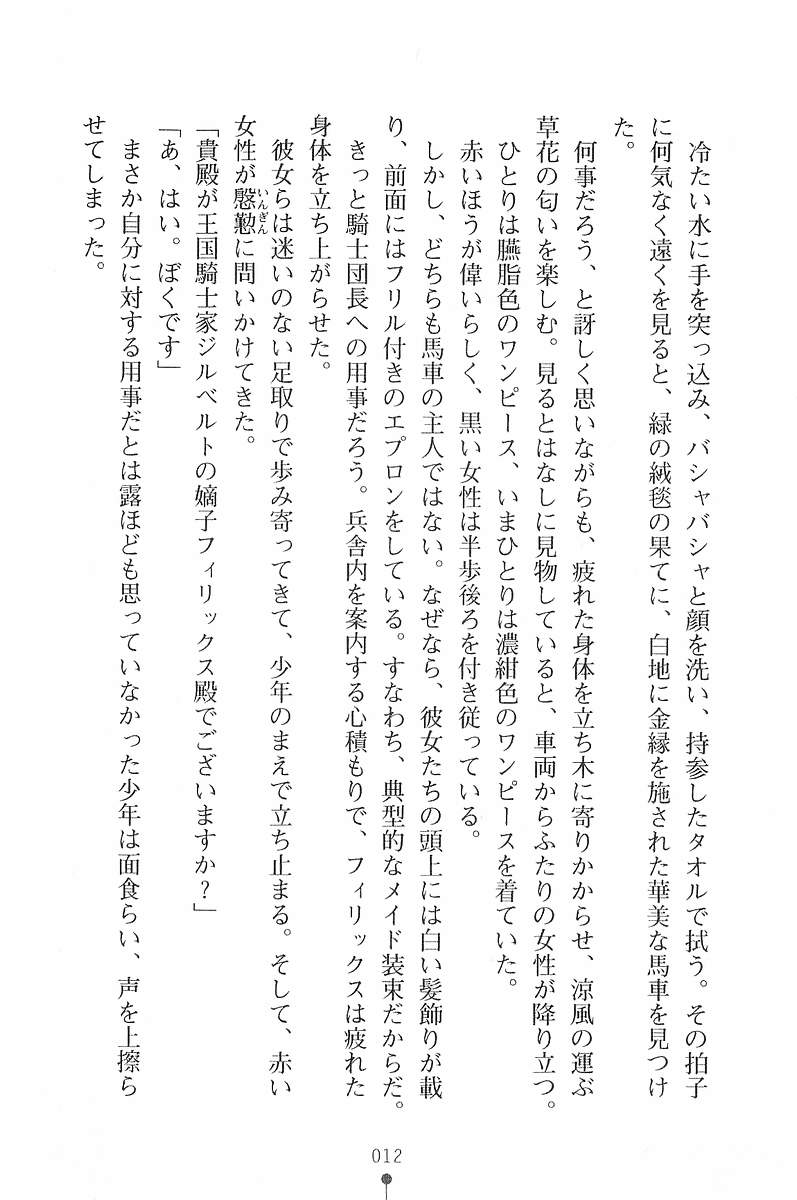 冷たい水に手を突っ込み、バシャバシャと顔を洗い、持参したタオルで拭う。その拍子
に何気なく遠くを見ると、緑の絨毯の果てに、白地に金縁を施された華美な馬車を見つけ
た。
何事だろう、と訝しく思いながらも、疲れた身体を立ち木に寄りかからせ、涼風の運ぶ
草花の匂いを楽しむ。見るとはなしに見物していると、車両からふたりの女性が降り立つ。
ひとりは臙脂色のワンピース、いまひとりは濃紺色のワンピースを着ていた。
赤いほうが偉いらしく、黒い女性は半歩後ろを付き従っている。
しかし、どちらも馬車の主人ではない。なぜなら、彼女たちの頭上には白い髪飾りが載
り、前面にはフリル付きのエプロンをしている。すなわち、典型的なメイド装束だからだ。
きっと騎士団長への用事だろう。兵舎内を案内する心積もりで、フィリックスは疲れた
身体を立ち上がらせた。
彼女らは迷いのない足取りで歩み寄ってきて、少年のまえで立ち止まる。そして、赤い
女性が慇懃いんぎんに問いかけてきた。
「貴殿が王国騎士家ジルベルトの嫡子フィリックス殿でございますか？」
「あ、はい。ぼくです」
まさか自分に対する用事だとは露ほども思っていなかった少年は面食らい、声を上擦ら
せてしまった。
012